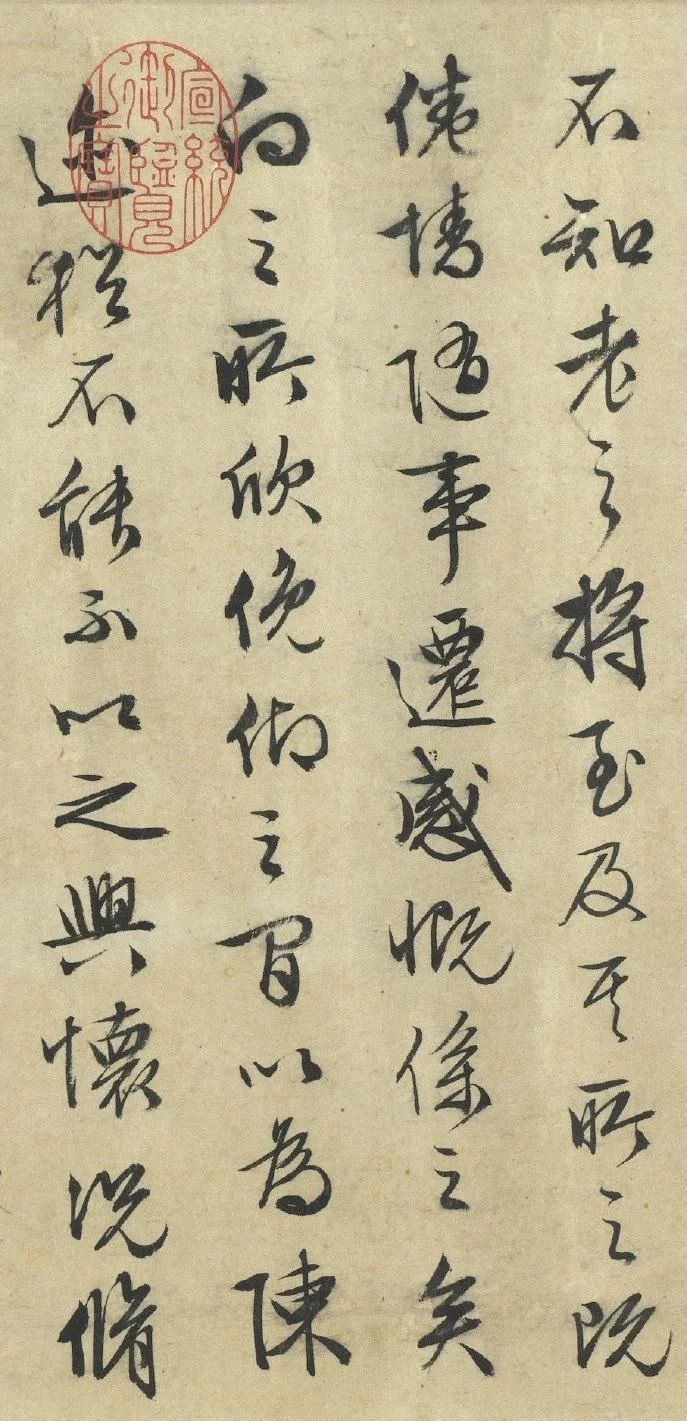 不知老之將至及其所之既
倦情隨事遷感慨係之矣
向之所欣俛仰之間以為陳
迹猶不能不以之興懷況脩
宣統御覽之寶